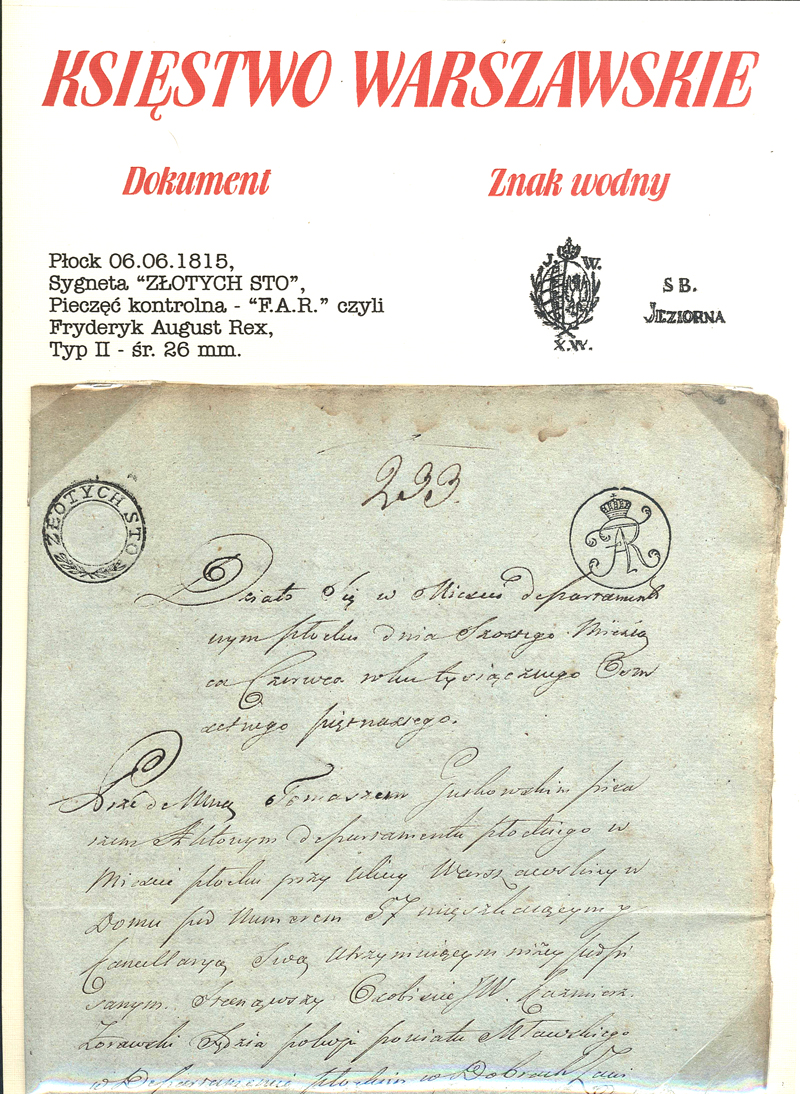 KSIĘSTWO WARSZAWSKIE
Dokument
Znak wodny
Płock 06.06.1815,
Sygneta “ZŁOTYCH STO”,
Pieczęć kontrolna - “F.A.R.” czyli
Fryderyk August Rex,
Typ II - śr. 26 mm.
J. W.
X.W.
S B.
JEZIORNA
233.
ZŁOTYCH STO
Działo Się w Mieście departament
nym płocku dnia Szostego Miesią
ca Czerwca roku tysiącznego Osm
setnego piętnastego.
Przede Mną Tomaszem Guskowskim pisa
rzem Aktowym departamentu płockiego w
Mieście płocku przy Ulicy Warszawskiey w
Domu pod Numerem 57 mieszkaiącym y
Cancellaryą Swą utrzymuiącym niżey podpi
sanym. Stenąwszy Osobiście JW. Kazmierz
Zorawski Sędzia pokoju powiatu Mławskiego
w Departamencie płockim w Dobrach